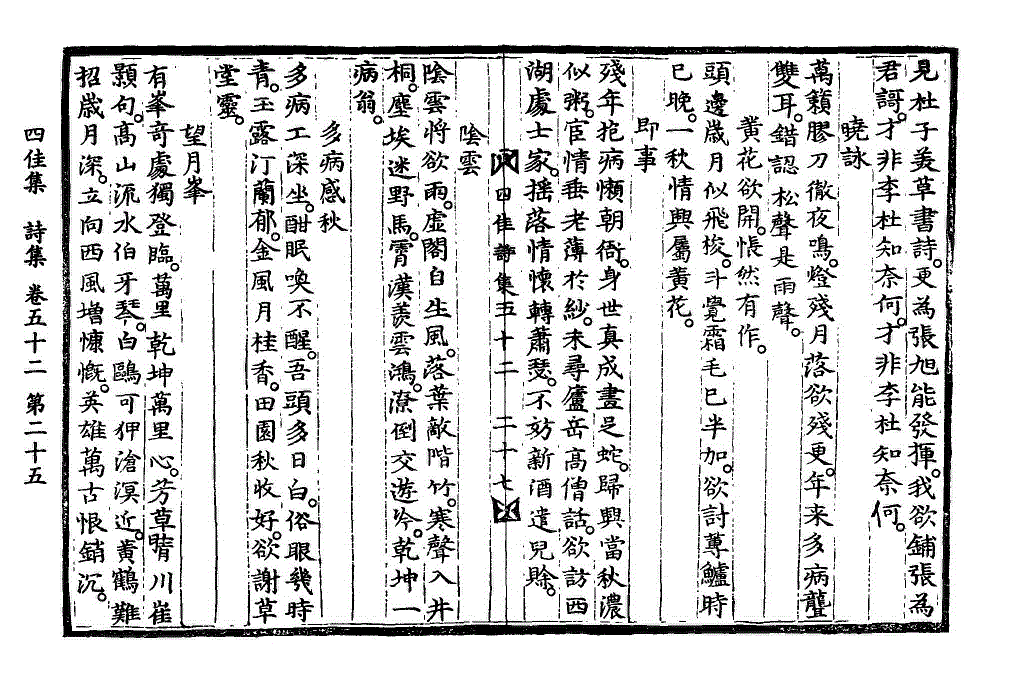 見杜子羙草書詩。更為張旭能發揮。我欲鋪張為
君謌。才非李杜知奈何。才非李杜知奈何。
曉詠
萬籟膠刀徹夜鳴。燈殘月落欲殘更。年来多病聾
雙耳。錯認松聲是雨聲。
黄花欲開。悵然有作。
頭邊歲月似飛梭。斗覺霜毛已半加。欲討蓴鱸時
已晚。一秋情興屬黄花。
即事
殘年抱病懶朝衙。身世真成畫足蛇。歸興當秋濃
似粥。宦情垂老薄於紗。未尋廬岳高僧話。欲訪西
湖處士家。揺落情懷轉蕭瑟。不妨新酒遣兒賒。
四佳詩集五十二 二十七
陰雲
陰雲將欲雨。虛閣自生風。落葉敲階竹。寒聲入井
桐。塵埃迷野馬。霄漢羨雲鴻。潦倒交遊少。乾坤一
病翁。
多病感秋
多病工深坐。酣眠喚不醒。吾頭多日白。俗眼幾時
青。玉露汀蘭郁。金風月桂香。田園秋收好。欲謝草
堂靈。
望月峯
有峯奇處獨登臨。萬里乾坤萬里心。芳草晴川崔
顥句。高山流水伯牙琴。白鷗可狎滄溟近。黄鶴難
招歲月深。立向西風增慷慨。英雄萬古恨銷沉。
四佳集 詩集 卷五十二 第二十五